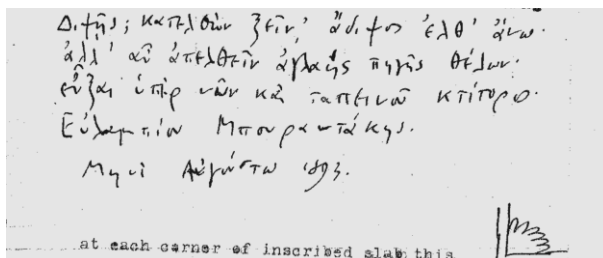 Διψῇς; κατελθὼν ξεῖν' ἄδιψος ἐλθ' ἄνω.
ἀλλ' αὖ ἀπελθεῖν ἀγλαῆς πηγῆς θέλων.
εὖξαι ὑπὲρ νῶν καὶ ταπεινοῦ κτίτορο.
Εὐλαμπίου Μπουραντάκης.
Μηνὶ Αὐγούστω 1893.
at each corner of inscribed slab this